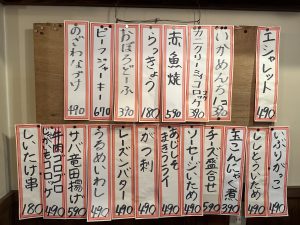 エシャレット 490
いかめんち1コ 370
カニクリーミィコロッケ 590
赤魚焼 590
らっきょう 180
おぼろどーふ 390
ビーフジャーキー 670
のざわなづけ 490
いぶりがっこ 490
ししとういため 490
玉こんにゃく煮 390
チーズ盛合せ 590
ソーセージいため 490
あじしそまきフライ 490
がつ刺 490
レーズンバター 490
うるめいわし 490
サバ竜田揚げ 590
牛肉コロコロ 490
じゃがいもコロッケ 490
しいたけ串 180